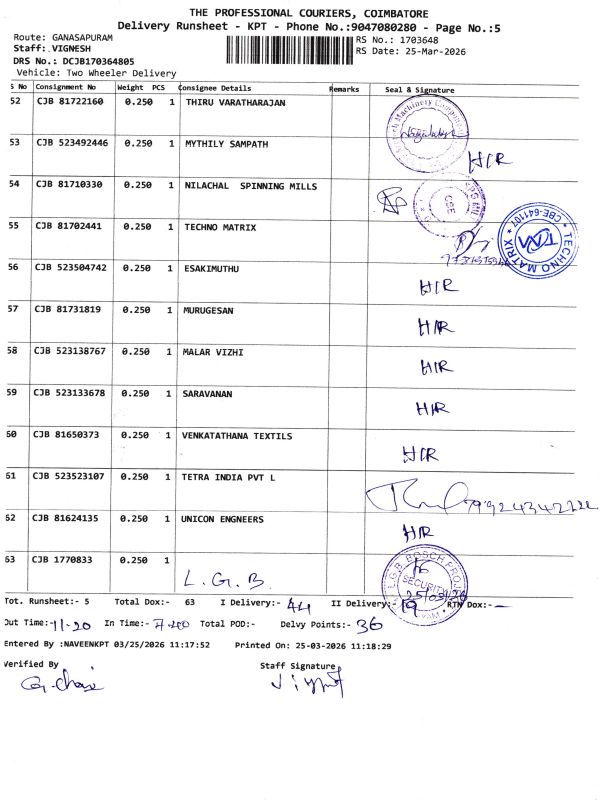 THE PROFESSIONAL COURIERS, COIMBATORE
Delivery Runsheet - KPT - Phone No.:9047080280 - Page No.:5
Route: GANASAPURAM
RS No.: 1703648
Staff: VIGNESH
RS Date: 25-Mar-2026
DRS No.: DCJB170364805
Vehicle: Two Wheeler Delivery
S No Consignment No Weight PCS Consignee Details Remarks Seal & Signature
52 CJB 81722160 0.250 1 THIRU VARATHARAJAN
53 CJB 523492446 0.250 1 MYTHILY SAMPATH H/R
54 CJB 81710330 0.250 1 NILACHAL SPINNING MILLS CSE
55 CJB 81702441 0.250 1 TECHNO MATRIX
TECHNO MATRIX CBE-641107
56 CJB 523504742 0.250 1 ESAKIMUTHU H/R
57 CJB 81731819 0.250 1 MURUGESAN H/R
58 CJB 523138767 0.250 1 MALAR VIZHI H/R
59 CJB 523133678 0.250 1 SARAVANAN H/R
60 CJB 81650373 0.250 1 VENKATATHANA TEXTILS H/R
61 CJB 523523107 0.250 1 TETRA INDIA PVT L
62 CJB 81624135 0.250 1 UNICON ENGNEERS H/R
63 CJB 1770833 0.250 1 L.G.B.
L.G.B. BOSCH PROJ
SECURITY
25/03/26
Tot. Runsheet:- 5 Total Dox:- 63 I Delivery:- 44 II Delivery:- 19 RTN Dox:- —
Out Time:- 11-20 In Time:- 7-00 Total POD:- Delvy Points:- 36
Entered By :NAVEENKPT 03/25/2026 11:17:52 Printed On: 25-03-2026 11:18:29
Verified By Staff Signature